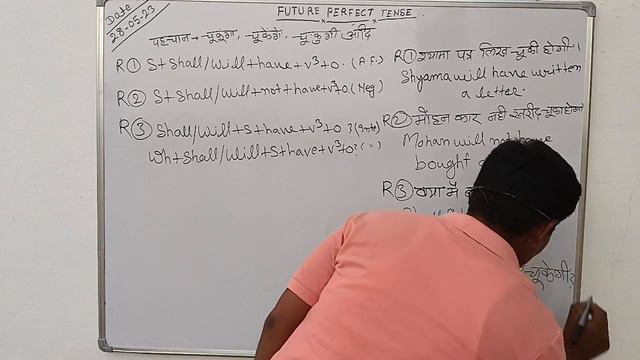 Date
28-05-23
FUTURE PERFECT TENSE.
पहचान → चूकूगा, -चूकेंगे, -चूकुगी आदि
R① S+Shall/Will+have+V³+O. (A.F.)
R② S+Shall/Will+not+have+V³+O (Neg)
R③ Shall/Will+S+have+V³+O ? (Inte)
Wh+Shall/Will+S+have+V³+O? (")
R① श्यामा पत्र लिख-चूकी होगी।
Shyama will have written
a letter.
R② मोहन कार नही खरीद-चूका होगा
Mohan will not have
bought
R③ क्या मैं
-चूकेगी